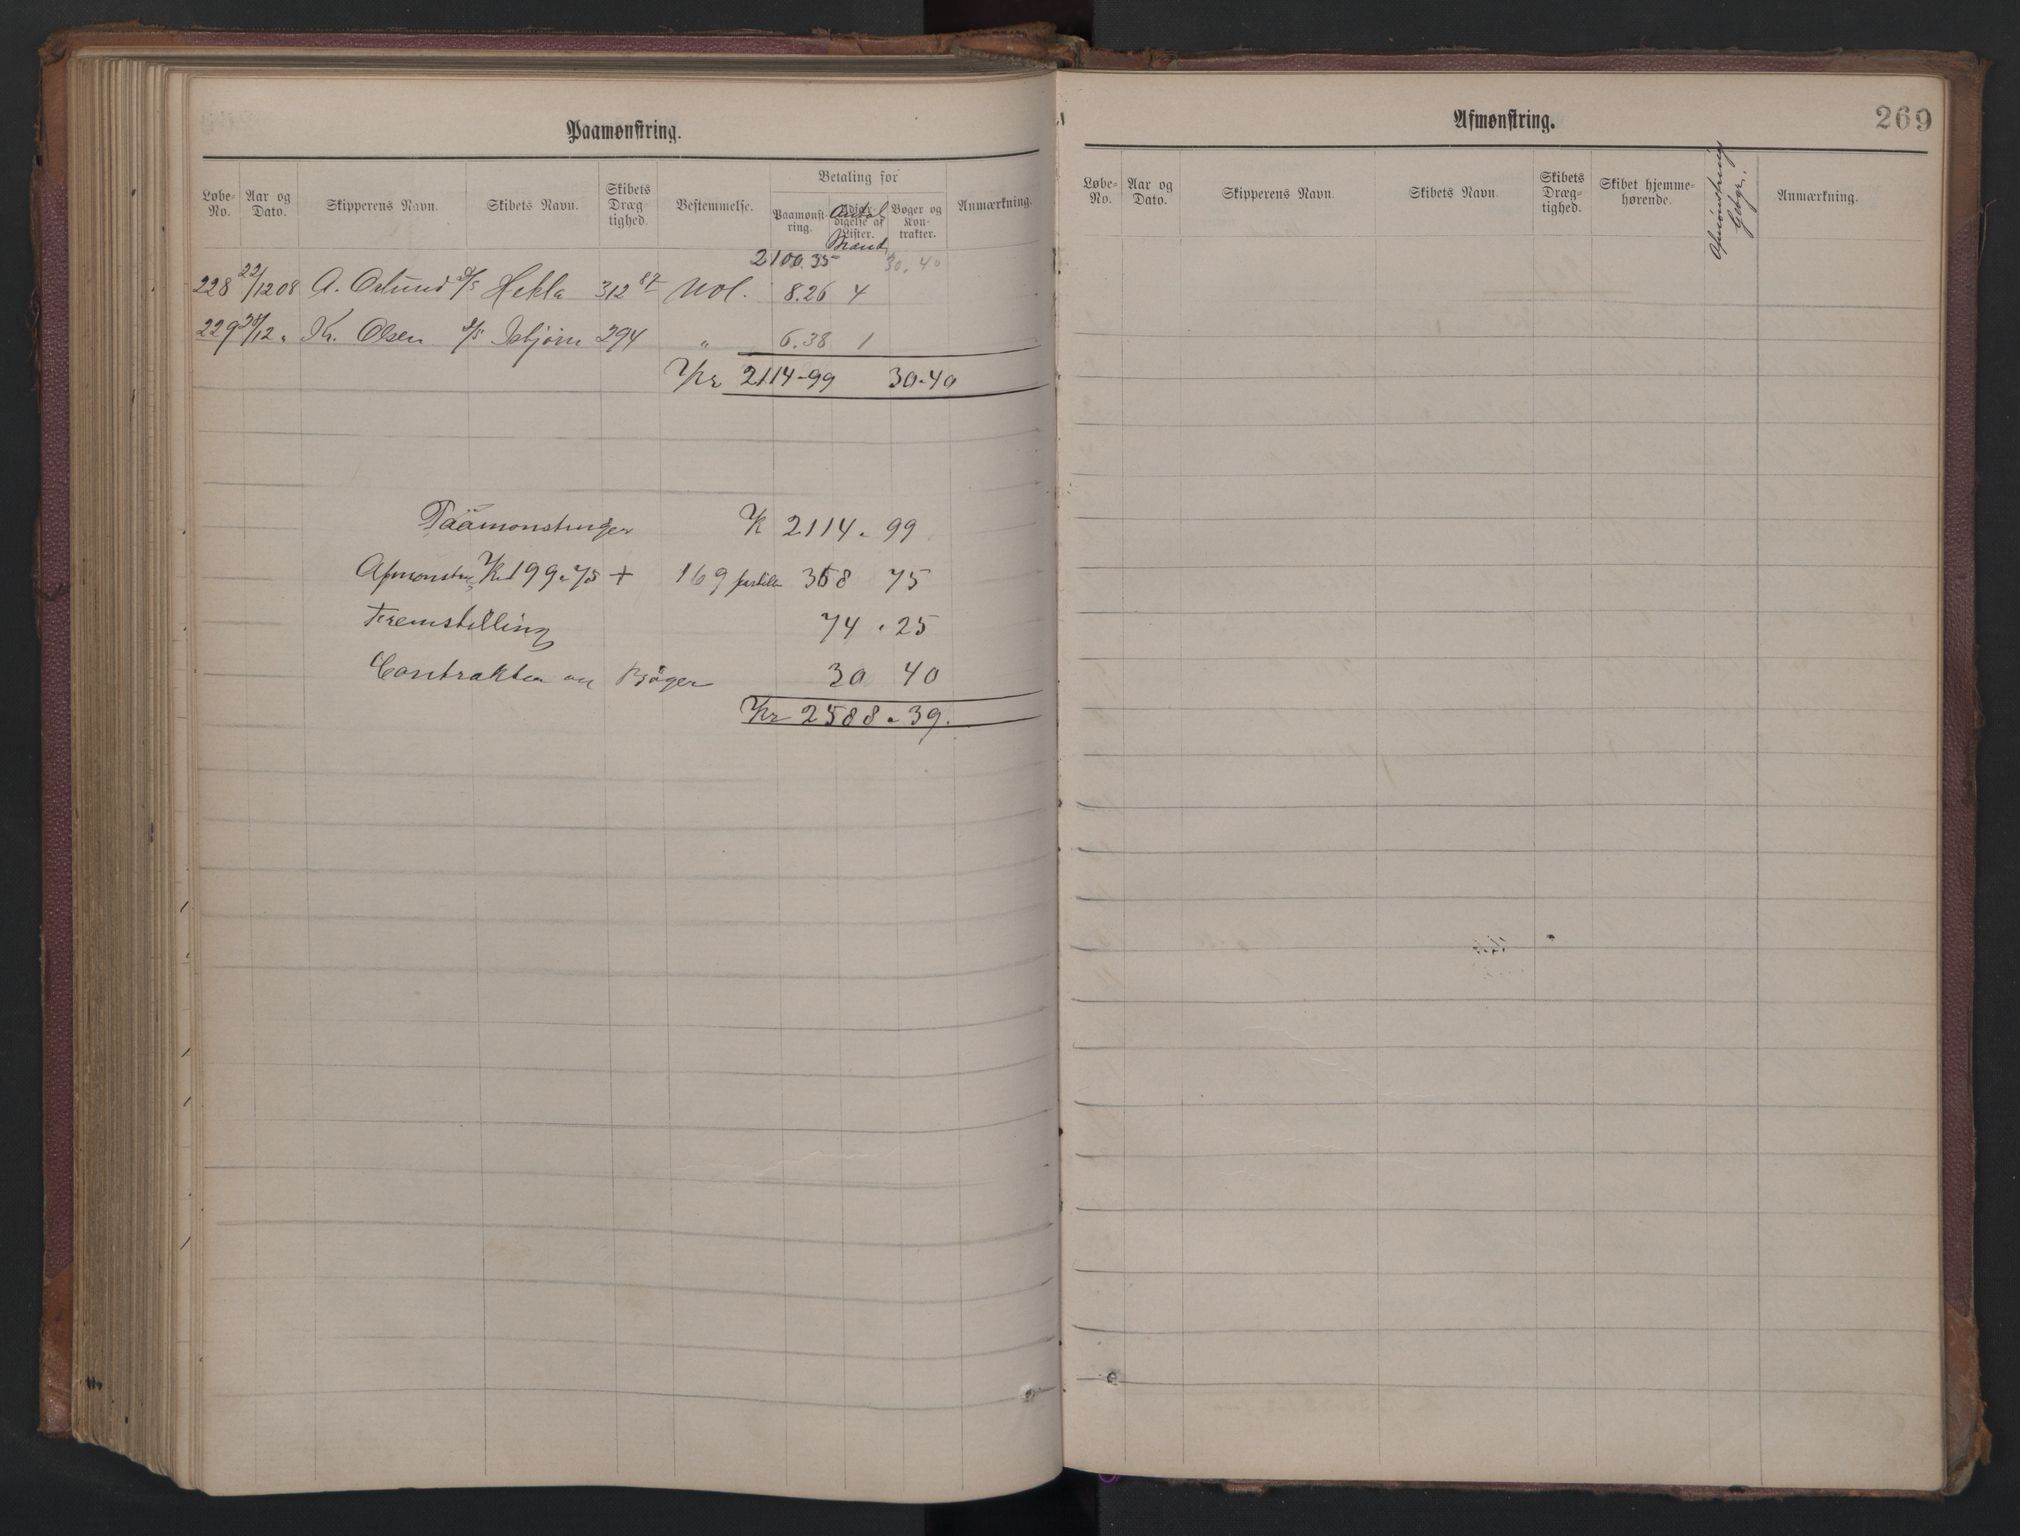 Paamønstring.
Løbe-No. Aar og Dato. Skipperens Navn. Skibets Navn. Skibets Dræg-tighed. Bestemmelse. Betaling for Paamønst-ring. Udfær-digelse af Lister. Antal Mænd Bøger og Kon-trakter. Anmærkning.
2100.35 30.40
228 22/12 08 A. Oslund D/S Hekla 312 87 Nol. 8.26 4
229 28/12 „ Kr. Olsen D/S Isbjørn 294 „ 6.38 1
Kr 2114-99 30-40
Paamonstringer K 2114. 99
Afmonstr. Kr 199.75 + 169 358 75
Fremstilling 74.25
Contrakter og Bøger 30 40
Kr 2588.39.
Afmønstring.
269
Løbe-No. Aar og Dato. Skipperens Navn. Skibets Navn. Skibets Dræg-tighed. Skibet hjemme-hørende. Afmønstring Gebyr. Anmærkning.